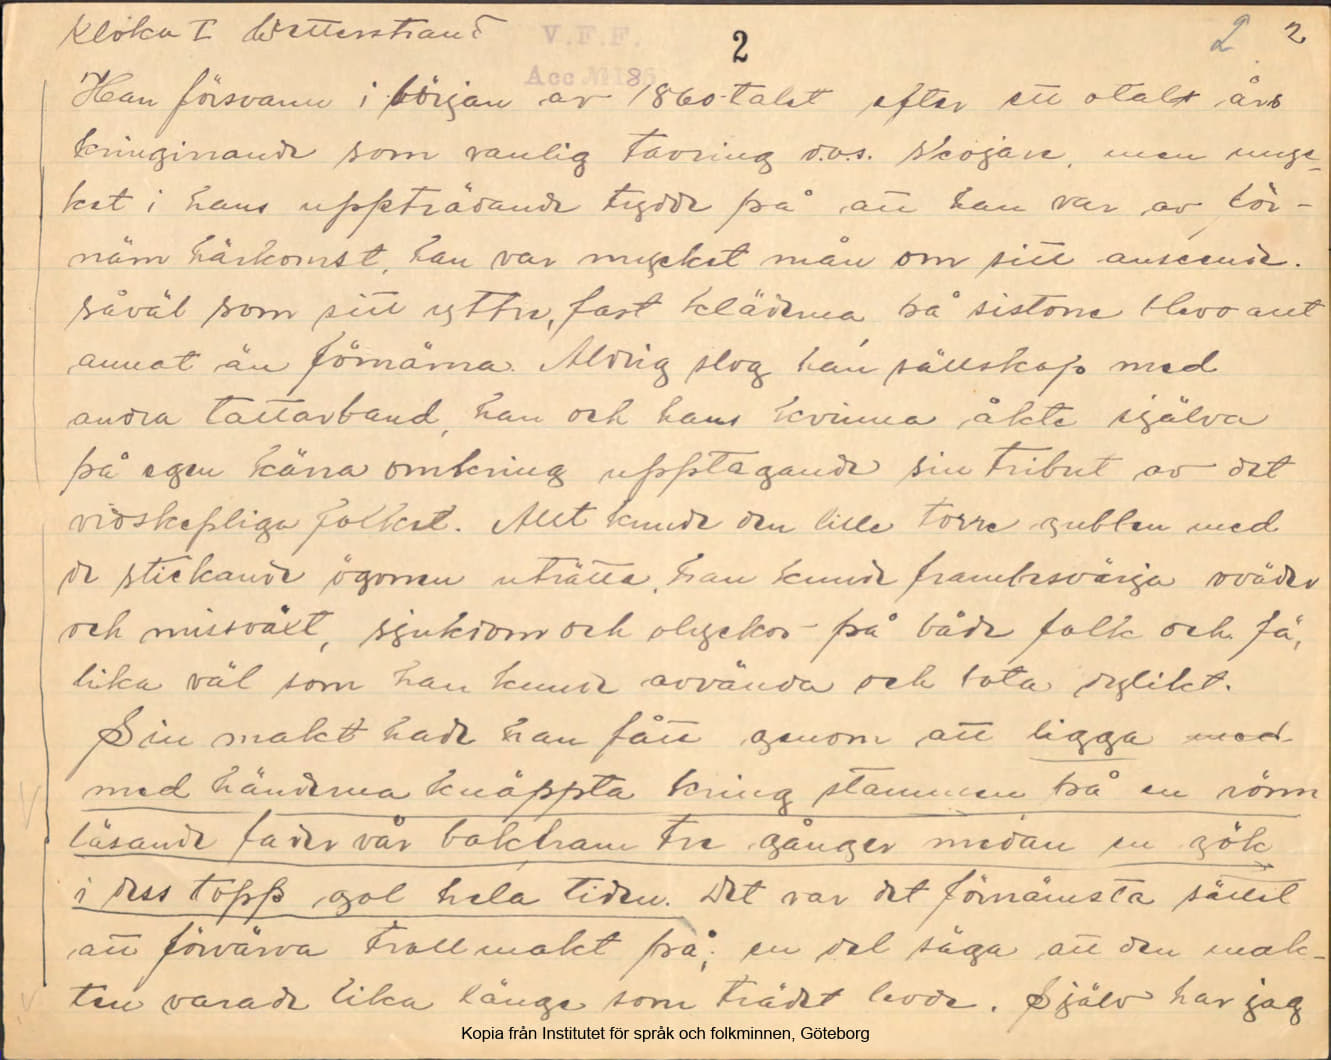 Kloka T Wetterstrand
V.F.F. 2 2 2
Acc № 185
Han försvann i början av 1860-talet efter ett otalt års
kringirrande som vanlig tavring d.v.s. skojare, men myc-
ket i hans uppträdande tydde på att han var av för-
näm härkomst, han var mycket mån om sitt anseende.
såväl som sitt yttre, fast kläderna på sistone blevo ant
annat än förnäma. Aldrig slog han sällskap med
andra tattarband, han och hans kvinna åkte själva
på egen kärra omkring upptagande sin tribut av det
vidskepliga folket. Allt kunde den lille torre gubben med
de stickande ögonen uträtta, han kunde frambesvärja oväder
och missväxt, sjukdom och olyckor på både folk och fä,
lika väl som han kunde avvända och bota dylikt.
Sin makt hade han fått genom att ligga med
med händerna knäppta kring stammen på en rönn
läsande fader vår bakfram tre gånger medan en gök
i dess topp gol hela tiden. Det var det förnämsta sättet
att förvärva trollmakt på; en del säga att den mak-
ten varade lika länge som trädet levde. Själv har jag
Kopia från Institutet för språk och folkminnen, Göteborg